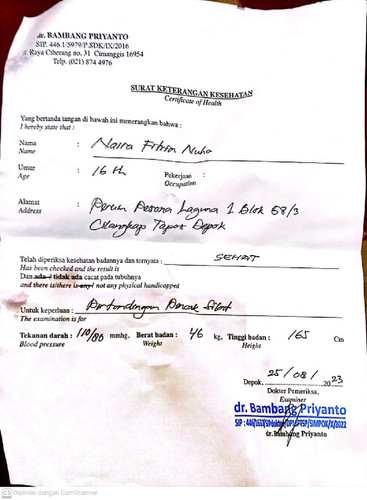 dr. BAMBANG PRIYANTO
SIP. 446.1/5979/P.SDK/IX/2016
Jl. Raya Ciherang no. 31 Cimanggis 16954
Telp. (021) 874 4976
SURAT KETERANGAN KESEHATAN
Certificate of Health
Yang bertanda tangan di bawah ini menerangkan bahwa :
I hereby state that :
Nama : Naira Fitrin Nuha
Name
Umur : 16 th Pekerjaan :
Age Occupation
Alamat : Perum Pesona Laguna 1 Blok G8/3
Address Cilangkap Tapos Depok
Telah diperiksa kesehatan badannya dan ternyata : SEHAT
Has been checked and the result is
Dan ada / tidak ada cacat pada tubuhnya
and there is/there is any/ not any physical handicapped
Untuk keperluan : Pertandingan Pencak Silat
The examination is for
Tekanan darah : 110/80 mmhg, Berat badan : 46 kg, Tinggi badan : 165 Cm
Blood pressure Weight Height
Depok, 25/08/ 2023
Dokter Pemeriksa,
Examiner
dr. Bambang Priyanto
dr. Bambang Priyanto
CS Dipindai dengan CamScanner